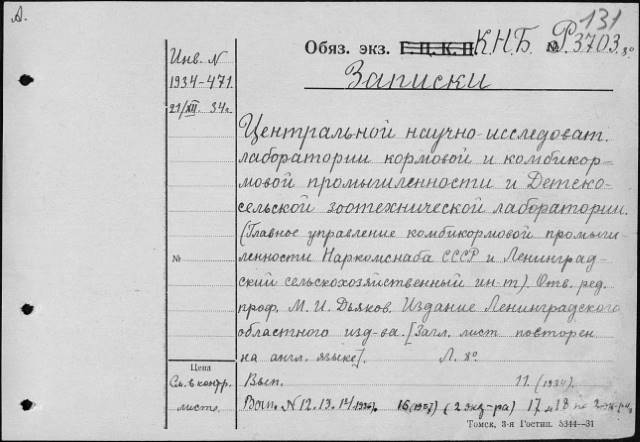 А.
131
Обяз. экз. Г.Ц.К.П. К.Н.Б. № Р.3703. 8º
Инв. N
1934-471.
21/XII. 34г.
Записки
Центральной научно-исследоват.
лаборатории кормовой и комбикор-
мовой промышленности и Детско-
сельской зоотехнической лаборатории.
(Главное управление комбикормовой промыш-
ленности Наркомснаба СССР и Ленинград-
ский сельскохозяйственный ин-т). Отв. ред.
проф. М. И. Дьяков. Издание Ленинградского
областного изд-ва. [Загл. лист повторен
на англ. языке]. Л. 8º
№
Цена
См. в контр.
листе.
Вып. 11. (1934).
Вып. N 12. 13. 14 (2 экз-ра) 17 и 18 по 2 экз-ра
Томск, 3-я Гостип. 5344—31